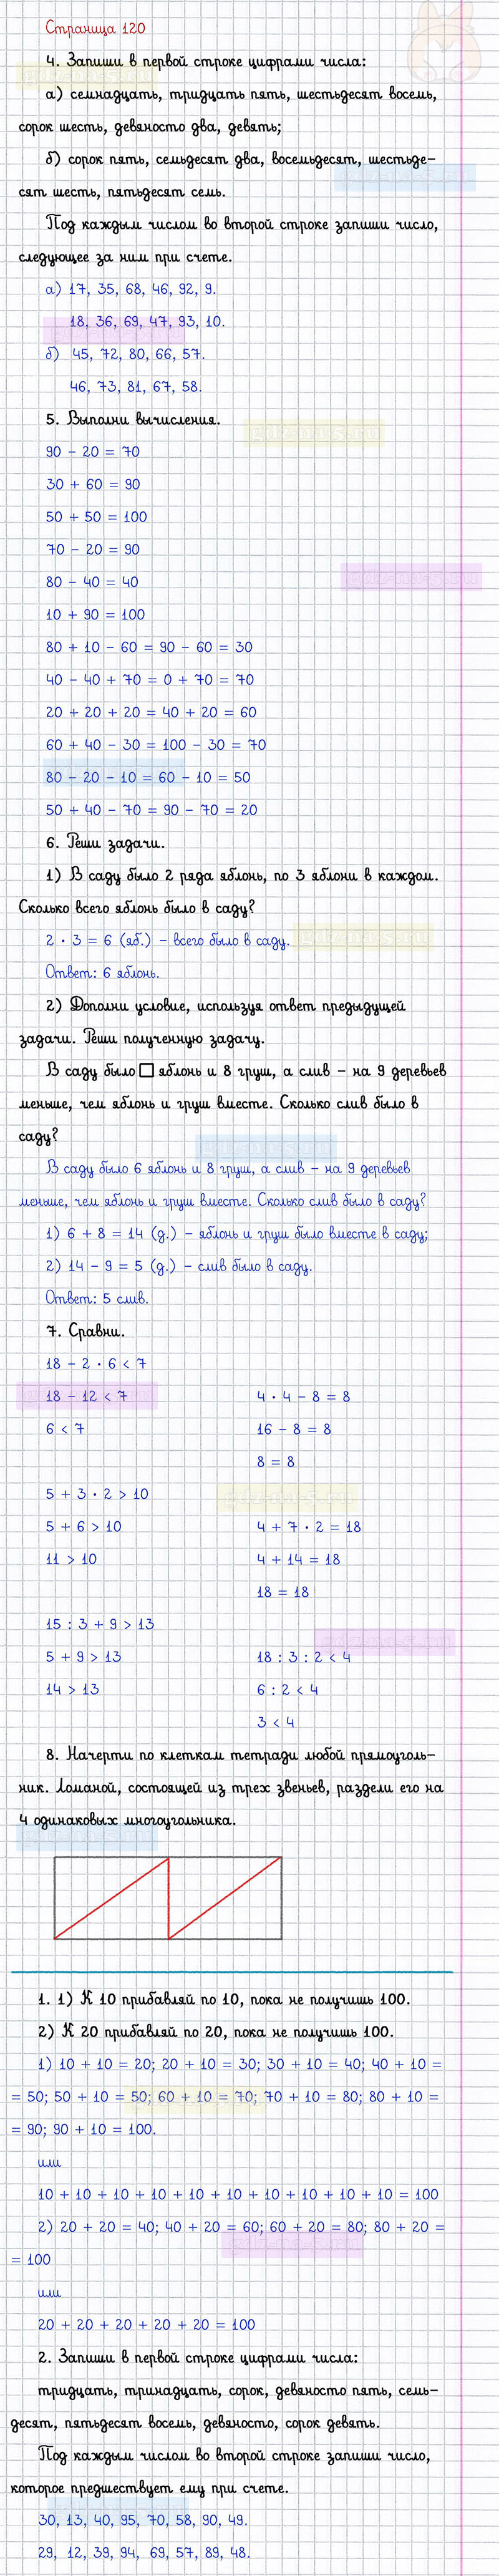 Страница 120
4. Запиши в первой строке цифрами числа:
а) семнадцать, тридцать пять, шестьдесят восемь,
сорок шесть, девяносто два, девять;
б) сорок пять, семьдесят два, восемьдесят, шестьде-
сят шесть, пятьдесят семь.
Под каждым числом во второй строке запиши число,
следующее за ним при счете.
а) 17, 35, 68, 46, 92, 9.
18, 36, 69, 47, 93, 10.
б) 45, 72, 80, 66, 57.
46, 73, 81, 67, 58.
5. Выполни вычисления.
90 - 20 = 70
30 + 60 = 90
50 + 50 = 100
70 - 20 = 90
80 - 40 = 40
10 + 90 = 100
80 + 10 - 60 = 90 - 60 = 30
40 - 40 + 70 = 0 + 70 = 70
20 + 20 + 20 = 40 + 20 = 60
60 + 40 - 30 = 100 - 30 = 70
80 - 20 - 10 = 60 - 10 = 50
50 + 40 - 70 = 90 - 70 = 20
6. Реши задачи.
1) В саду было 2 ряда яблонь, по 3 яблони в каждом.
Сколько всего яблонь было в саду?
2 · 3 = 6 (яб.) - всего было в саду.
Ответ: 6 яблонь.
2) Дополни условие, используя ответ предыдущей
задачи. Реши полученную задачу.
В саду было □ яблонь и 8 груш, а слив - на 9 деревьев
меньше, чем яблонь и груш вместе. Сколько слив было в
саду?
В саду было 6 яблонь и 8 груш, а слив - на 9 деревьев
меньше, чем яблонь и груш вместе. Сколько слив было в саду?
1) 6 + 8 = 14 (д.) - яблонь и груш было вместе в саду;
2) 14 - 9 = 5 (д.) - слив было в саду.
Ответ: 5 слив.
7. Сравни.
18 - 2 · 6 < 7
18 - 12 < 7
6 < 7
4 · 4 - 8 = 8
16 - 8 = 8
8 = 8
5 + 3 · 2 > 10
5 + 6 > 10
11 > 10
4 + 7 · 2 = 18
4 + 14 = 18
18 = 18
15 : 3 + 9 > 13
5 + 9 > 13
14 > 13
18 : 3 : 2 < 4
6 : 2 < 4
3 < 4
8. Начерти по клеткам тетради любой прямоуголь-
ник. Ломаной, состоящей из трех звеньев, раздели его на
4 одинаковых многоугольника.
1. 1) К 10 прибавляй по 10, пока не получишь 100.
2) К 20 прибавляй по 20, пока не получишь 100.
1) 10 + 10 = 20; 20 + 10 = 30; 30 + 10 = 40; 40 + 10 =
= 50; 50 + 10 = 50; 60 + 10 = 70; 70 + 10 = 80; 80 + 10 =
= 90; 90 + 10 = 100.
или
10 + 10 + 10 + 10 + 10 + 10 + 10 + 10 + 10 + 10 = 100
2) 20 + 20 = 40; 40 + 20 = 60; 60 + 20 = 80; 80 + 20 =
= 100
или
20 + 20 + 20 + 20 + 20 = 100
2. Запиши в первой строке цифрами числа:
тридцать, тринадцать, сорок, девяносто пять, семь-
десят, пятьдесят восемь, девяносто, сорок девять.
Под каждым числом во второй строке запиши число,
которое предшествует ему при счете.
30, 13, 40, 95, 70, 58, 90, 49.
29, 12, 39, 94, 69, 57, 89, 48.